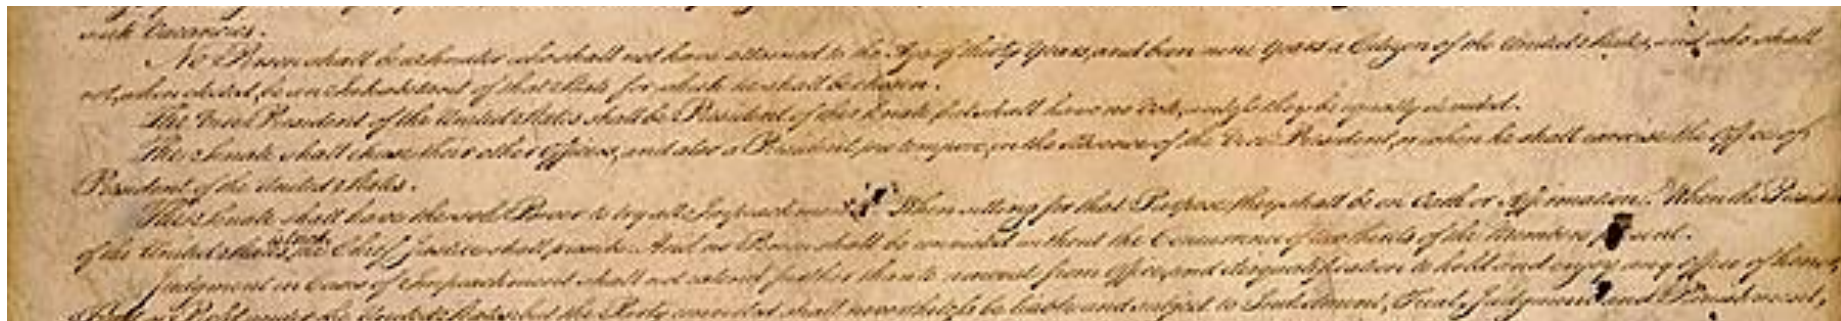 such Vacancies.
No Person shall be a Senator who shall not have attained to the Age of thirty Years, and been nine Years a Citizen of the United States, and who shall
not, when elected, be an Inhabitant of that State for which he shall be chosen.
The Vice President of the United States shall be President of the Senate, but shall have no Vote, unless they be equally divided.
The Senate shall chuse their other Officers, and also a President pro tempore, in the Absence of the Vice President, or when he shall exercise the Office of
President of the United States.
The Senate shall have the sole Power to try all Impeachments. When sitting for that Purpose, they shall be on Oath or Affirmation. When the President
of the United States is tried, the Chief Justice shall preside: And no Person shall be convicted without the Concurrence of two thirds of the Members present.
Judgment in Cases of Impeachment shall not extend further than to removal from Office, and disqualification to hold and enjoy any Office of honor,
Trust or Profit under the United States: but the Party convicted shall nevertheless be liable and subject to Indictment, Trial, Judgment and Punishment,